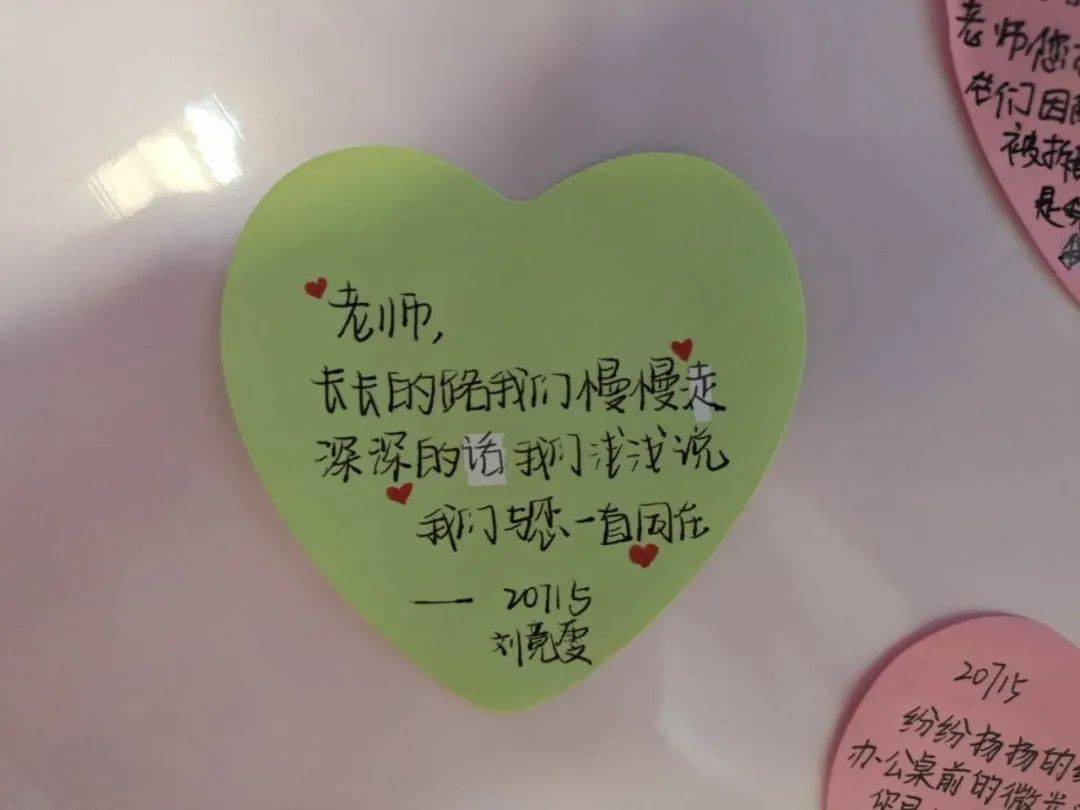 老师,
长长的路我们慢慢走
深深的话我们浅浅说
我们与您一直同在
—— 20715
刘竟雯
老师您
们因
被折
是
20715
纷纷扬扬的
办公桌前的微